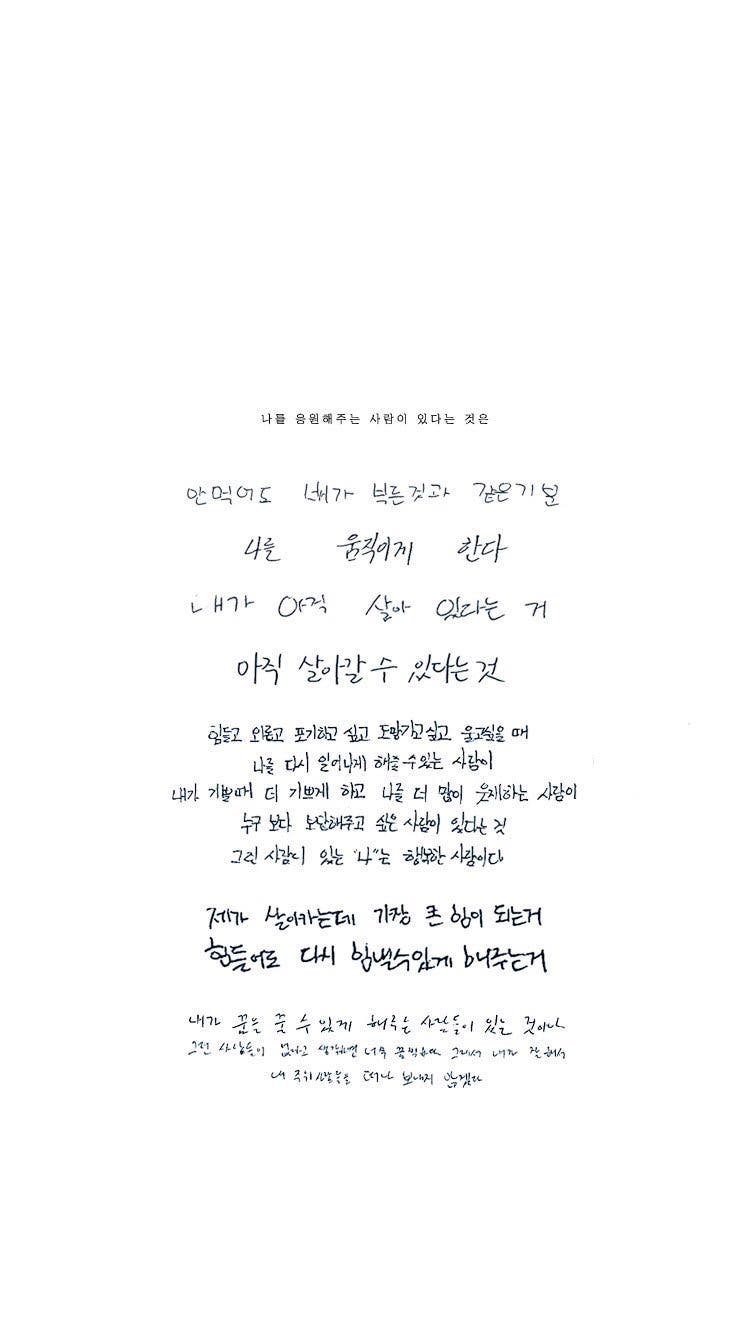 나를 응원해주는 사람이 있다는 것은
안먹어도 배가 부른것과 같은기분
나를 움직이게 한다
내가 아직 살아 있다는 거
아직 살아갈 수 있다는 것
힘들고 외롭고 포기하고 싶고 도망가고싶고 울고싶을 때
나를 다시 일어나게 해줄수있는 사람이
내가 기쁠때 더 기쁘게 하고 나를 더 많이 웃게하는 사람이
누구 보다 보답해주고 싶은 사람이 있다는 것
그런 사람이 있는 "나"는 행복한 사람이다
제가 살아가는데 가장 큰 힘이 되는거
힘들어도 다시 힘낼수있게 해주는거
내가 꿈을 꿀 수 있게 해주는 사람들이 있는 것이다
그런 사람들이 없다고 생각하면 너무 끔찍하다 그래서 내가 잘 해서
내 주위 사람들을 떠나 보내지 않겠다